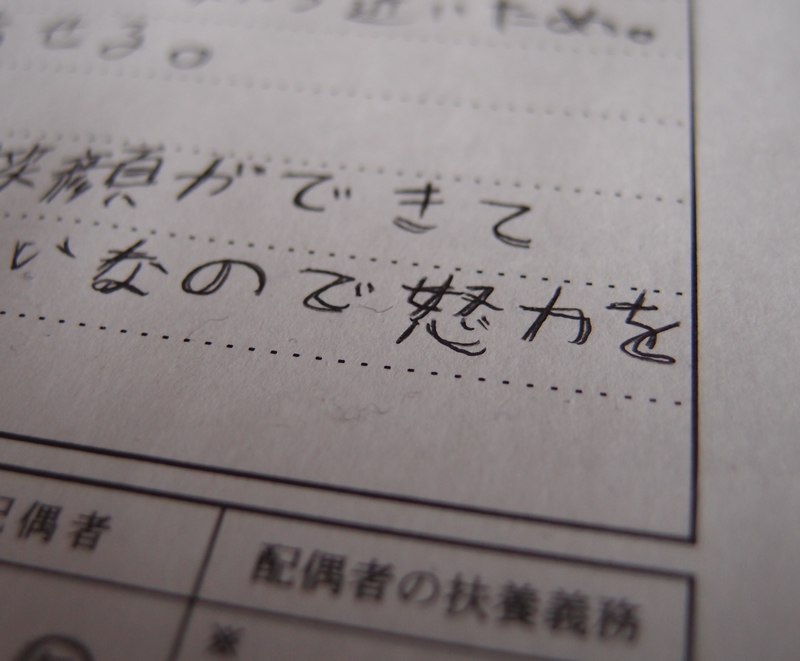 近いため。
せる。
笑顔ができて
いなので怒力を
配偶者
配偶者の扶養義務
※